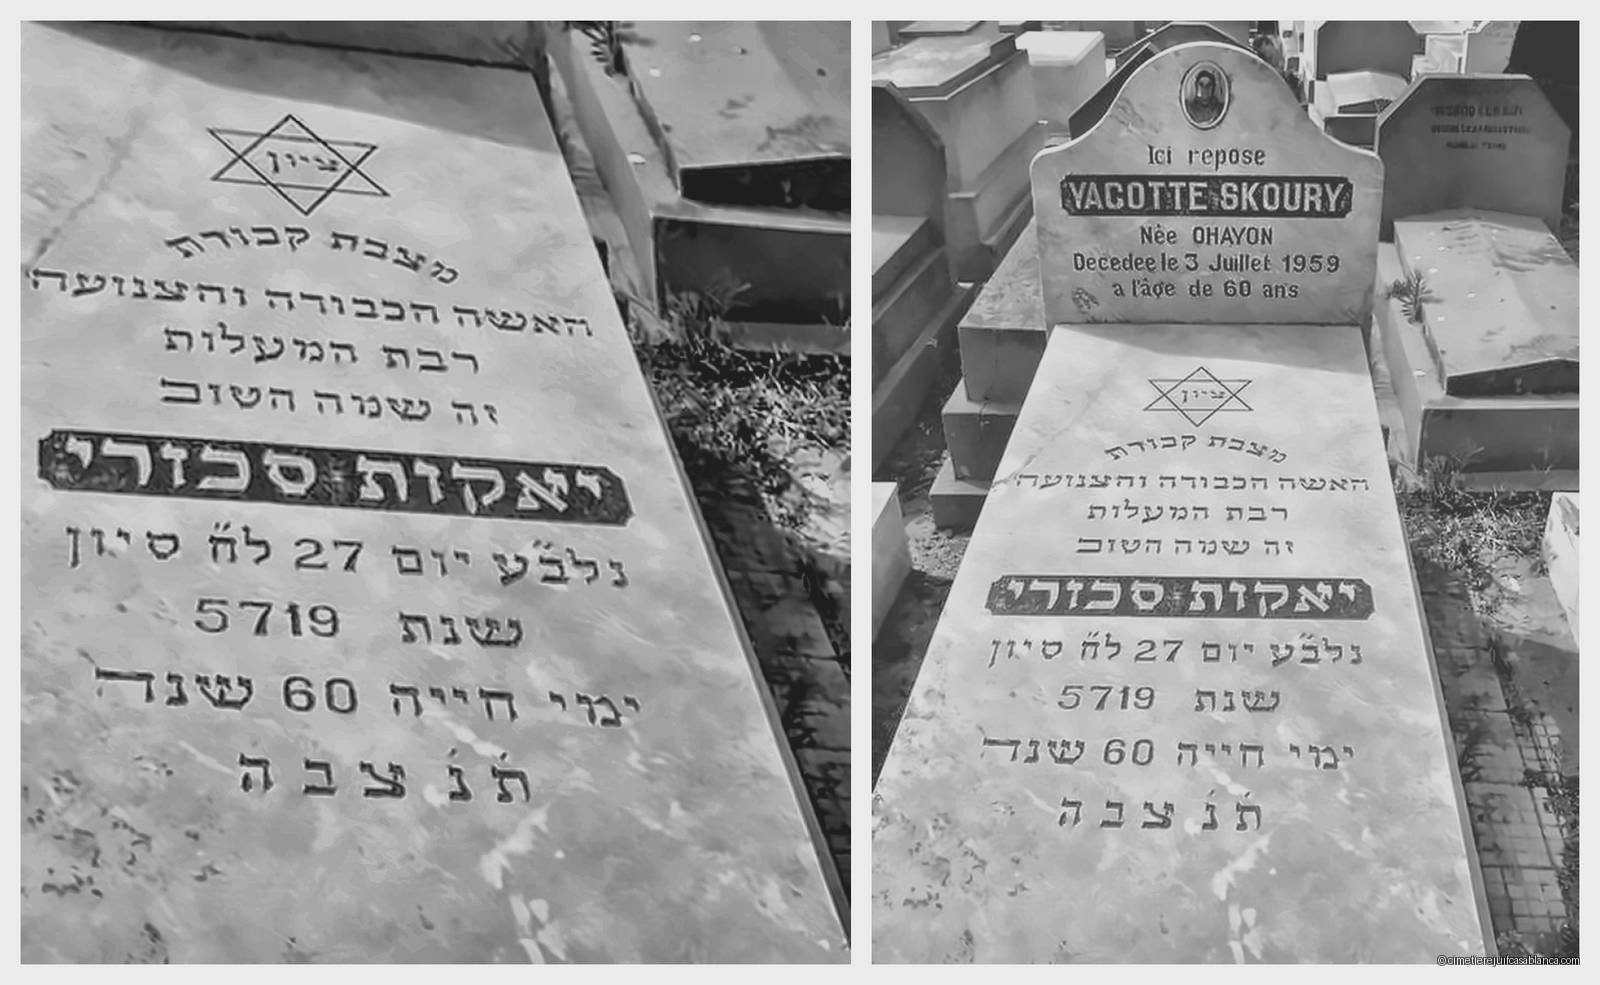 ציון
מצבת קבורת
האשה הכבודה והצנועה
רבת המעלות
זה שמה הטוב
יאקות סכורי
נלב״ע יום 27 לח״ סיון
שנת 5719
ימי חייה 60 שנה
ת׳ נ׳ צ ב ה
Ici repose
YACOTTE SKOURY
Née OHAYON
Decedee le 3 Juillet 1959
a l'âge de 60 ans
ציון
מצבת קבורת
האשה הכבודה והצנועה
רבת המעלות
זה שמה הטוב
יאקות סכורי
נלב״ע יום 27 לח״ סיון
שנת 5719
ימי חייה 60 שנה
ת׳ נ׳ צ ב ה
©cimetierejuifcasablanca.com